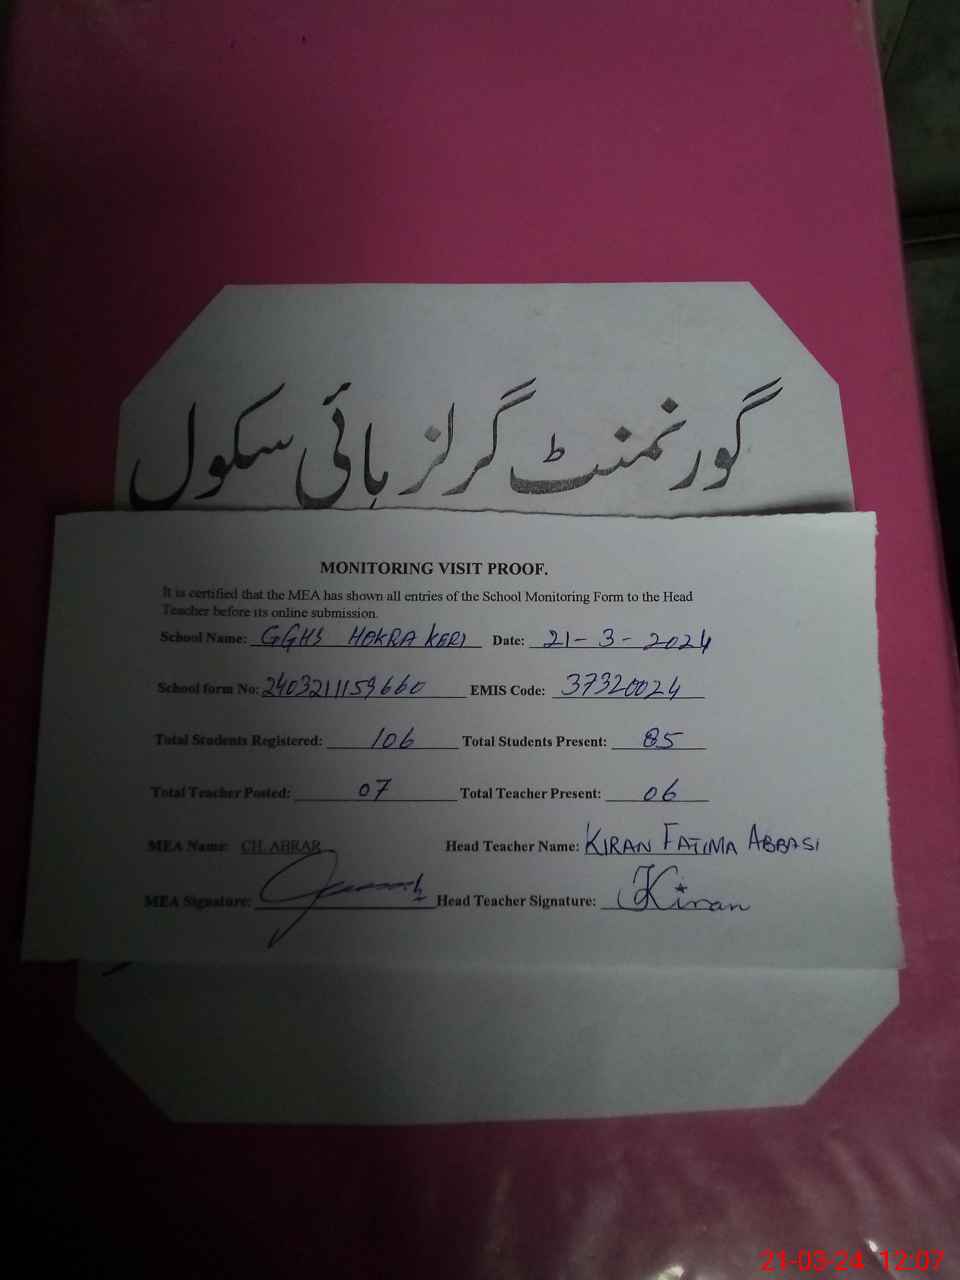 گورنمنٹ گرلز ہائی سکول
MONITORING VISIT PROOF.
It is certified that the MEA has shown all entries of the School Monitoring Form to the Head
Teacher before its online submission.
School Name: GGHS HOKRA KERI Date: 21-3-2024
School form No: 2403211159660 EMIS Code: 37320024
Total Students Registered: 106 Total Students Present: 85
Total Teacher Posted: 07 Total Teacher Present: 06
MEA Name: CH. ABRAR Head Teacher Name: KIRAN FATIMA ABBASI
MEA Signature: Head Teacher Signature: Kiran
21-03-24 12:07